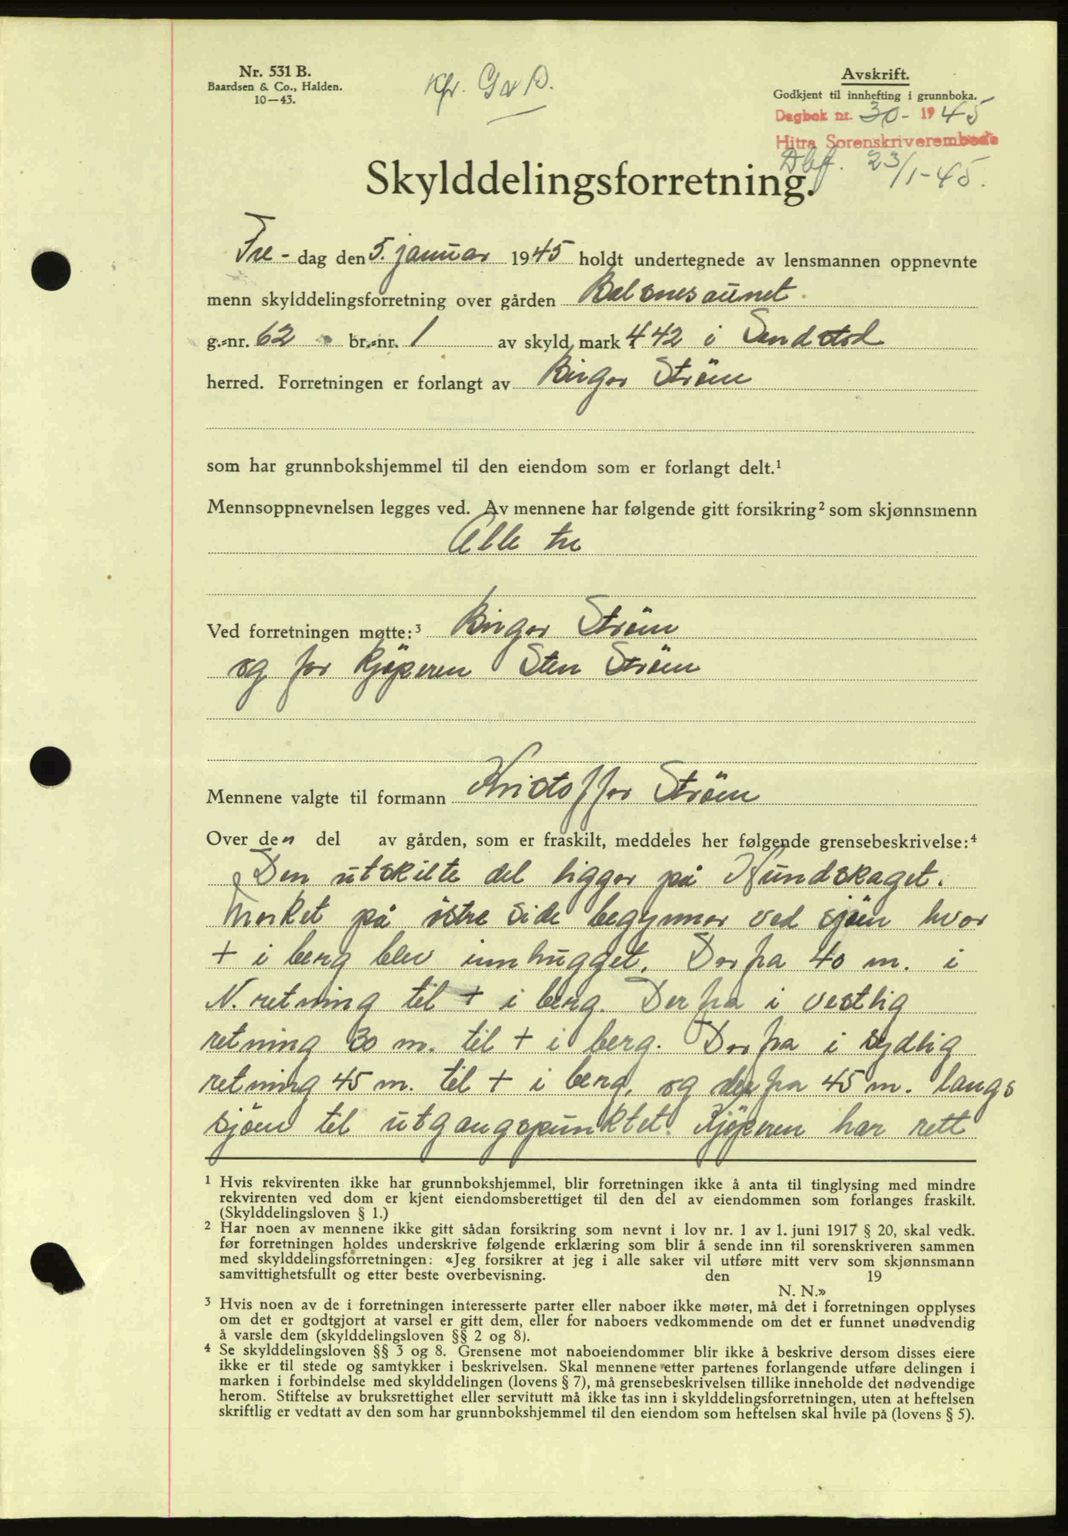 Nr. 531 B.
Baardsen & Co., Halden.
10—43.
Kfr. G & D.
Avskrift.
Godkjent til innhefting i grunnboka.
Dagbok nr. 30- 1945
Hitra Sorenskriverembede
Dbf. 23/1-45.
Skylddelingsforretning.
Fre- dag den 5. januar 1945 holdt undertegnede av lensmannen oppnevnte
menn skylddelingsforretning over gården Balsnesaunet.
g.-nr. 62 br.-nr. 1 av skyld mark 4.42 i Sandstad
herred. Forretningen er forlangt av Birger Ström
som har grunnbokshjemmel til den eiendom som er forlangt delt.¹
Mennsoppnevnelsen legges ved. Av mennene har følgende gitt forsikring² som skjønnsmenn
Alle tre
Ved forretningen møtte:³ Birger Ström
og for kjöperen Sten Ström
Mennene valgte til formann Kristoffer Ström
Over den del av gården, som er fraskilt, meddeles her følgende grensebeskrivelse:⁴
Den utskilte del ligger på Hundskaget.
Merket på östre side begynner ved sjöen hvor
+ i berg blev innhugget. Derfra 40 m. i
N. retning til + i berg. Derfra i vestlig
retning 30 m. til + i berg. Derfra i sydlig
retning 45 m. til + i berg, og derfra 45 m. langs
sjöen til utgangspunktet. Kjöperen har rett
¹ Hvis rekvirenten ikke har grunnbokshjemmel, blir forretningen ikke å anta til tinglysing med mindre
rekvirenten ved dom er kjent eiendomsberettiget til den del av eiendommen som forlanges fraskilt.
(Skylddelingsloven § 1.)
² Har noen av mennene ikke gitt sådan forsikring som nevnt i lov nr. 1 av 1. juni 1917 § 20, skal vedk.
før forretningen holdes underskrive følgende erklæring som blir å sende inn til sorenskriveren sammen
med skylddelingsforretningen: «Jeg forsikrer at jeg i alle saker vil utføre mitt verv som skjønnsmann
samvittighetsfullt og etter beste overbevisning. den 19
N. N.»
³ Hvis noen av de i forretningen interesserte parter eller naboer ikke møter, må det i forretningen opplyses
om det er godtgjort at varsel er gitt dem, eller for naboers vedkommende om det er funnet unødvendig
å varsle dem (skylddelingsloven §§ 2 og 8).
⁴ Se skylddelingsloven §§ 3 og 8. Grensene mot naboeiendommer blir ikke å beskrive dersom disses eiere
ikke er til stede og samtykker i beskrivelsen. Skal mennene etter partenes forlangende utføre delingen i
marken i forbindelse med skylddelingen (lovens § 7), må grensebeskrivelsen tillike inneholde det nødvendige
herom. Stiftelse av bruksrettighet eller servitutt må ikke tas inn i skylddelingsforretningen, uten at heftelsen
skriftlig er vedtatt av den som har grunnbokshjemmel til den eiendom som heftelsen skal hvile på (lovens § 5).